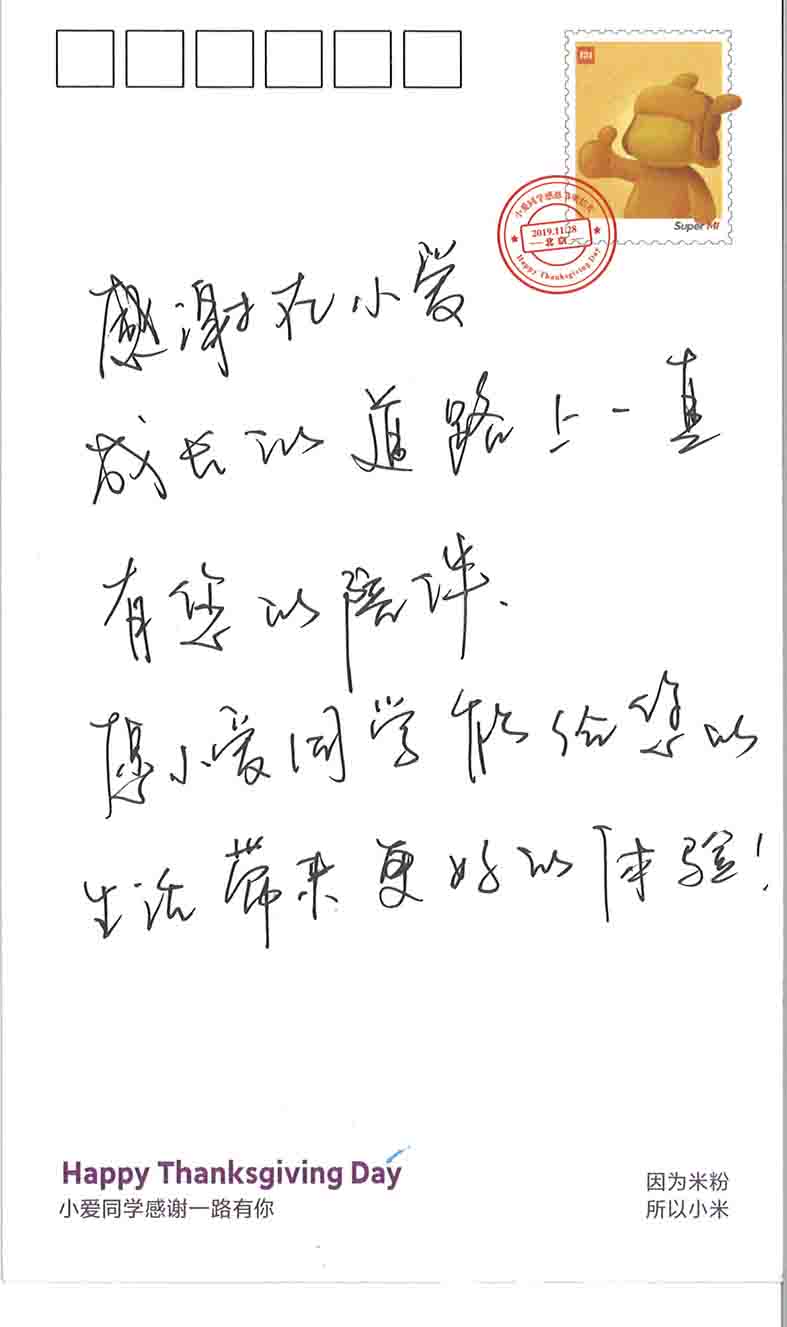 Super MI
小爱同学感恩节明信片
2019.11.28
北京
Happy Thanksgiving Day
感谢在小爱
成长的道路上一直
有您的陪伴.
愿小爱同学能给您的
生活带来更好的体验!
Happy Thanksgiving Day
小爱同学感谢一路有你
因为米粉
所以小米